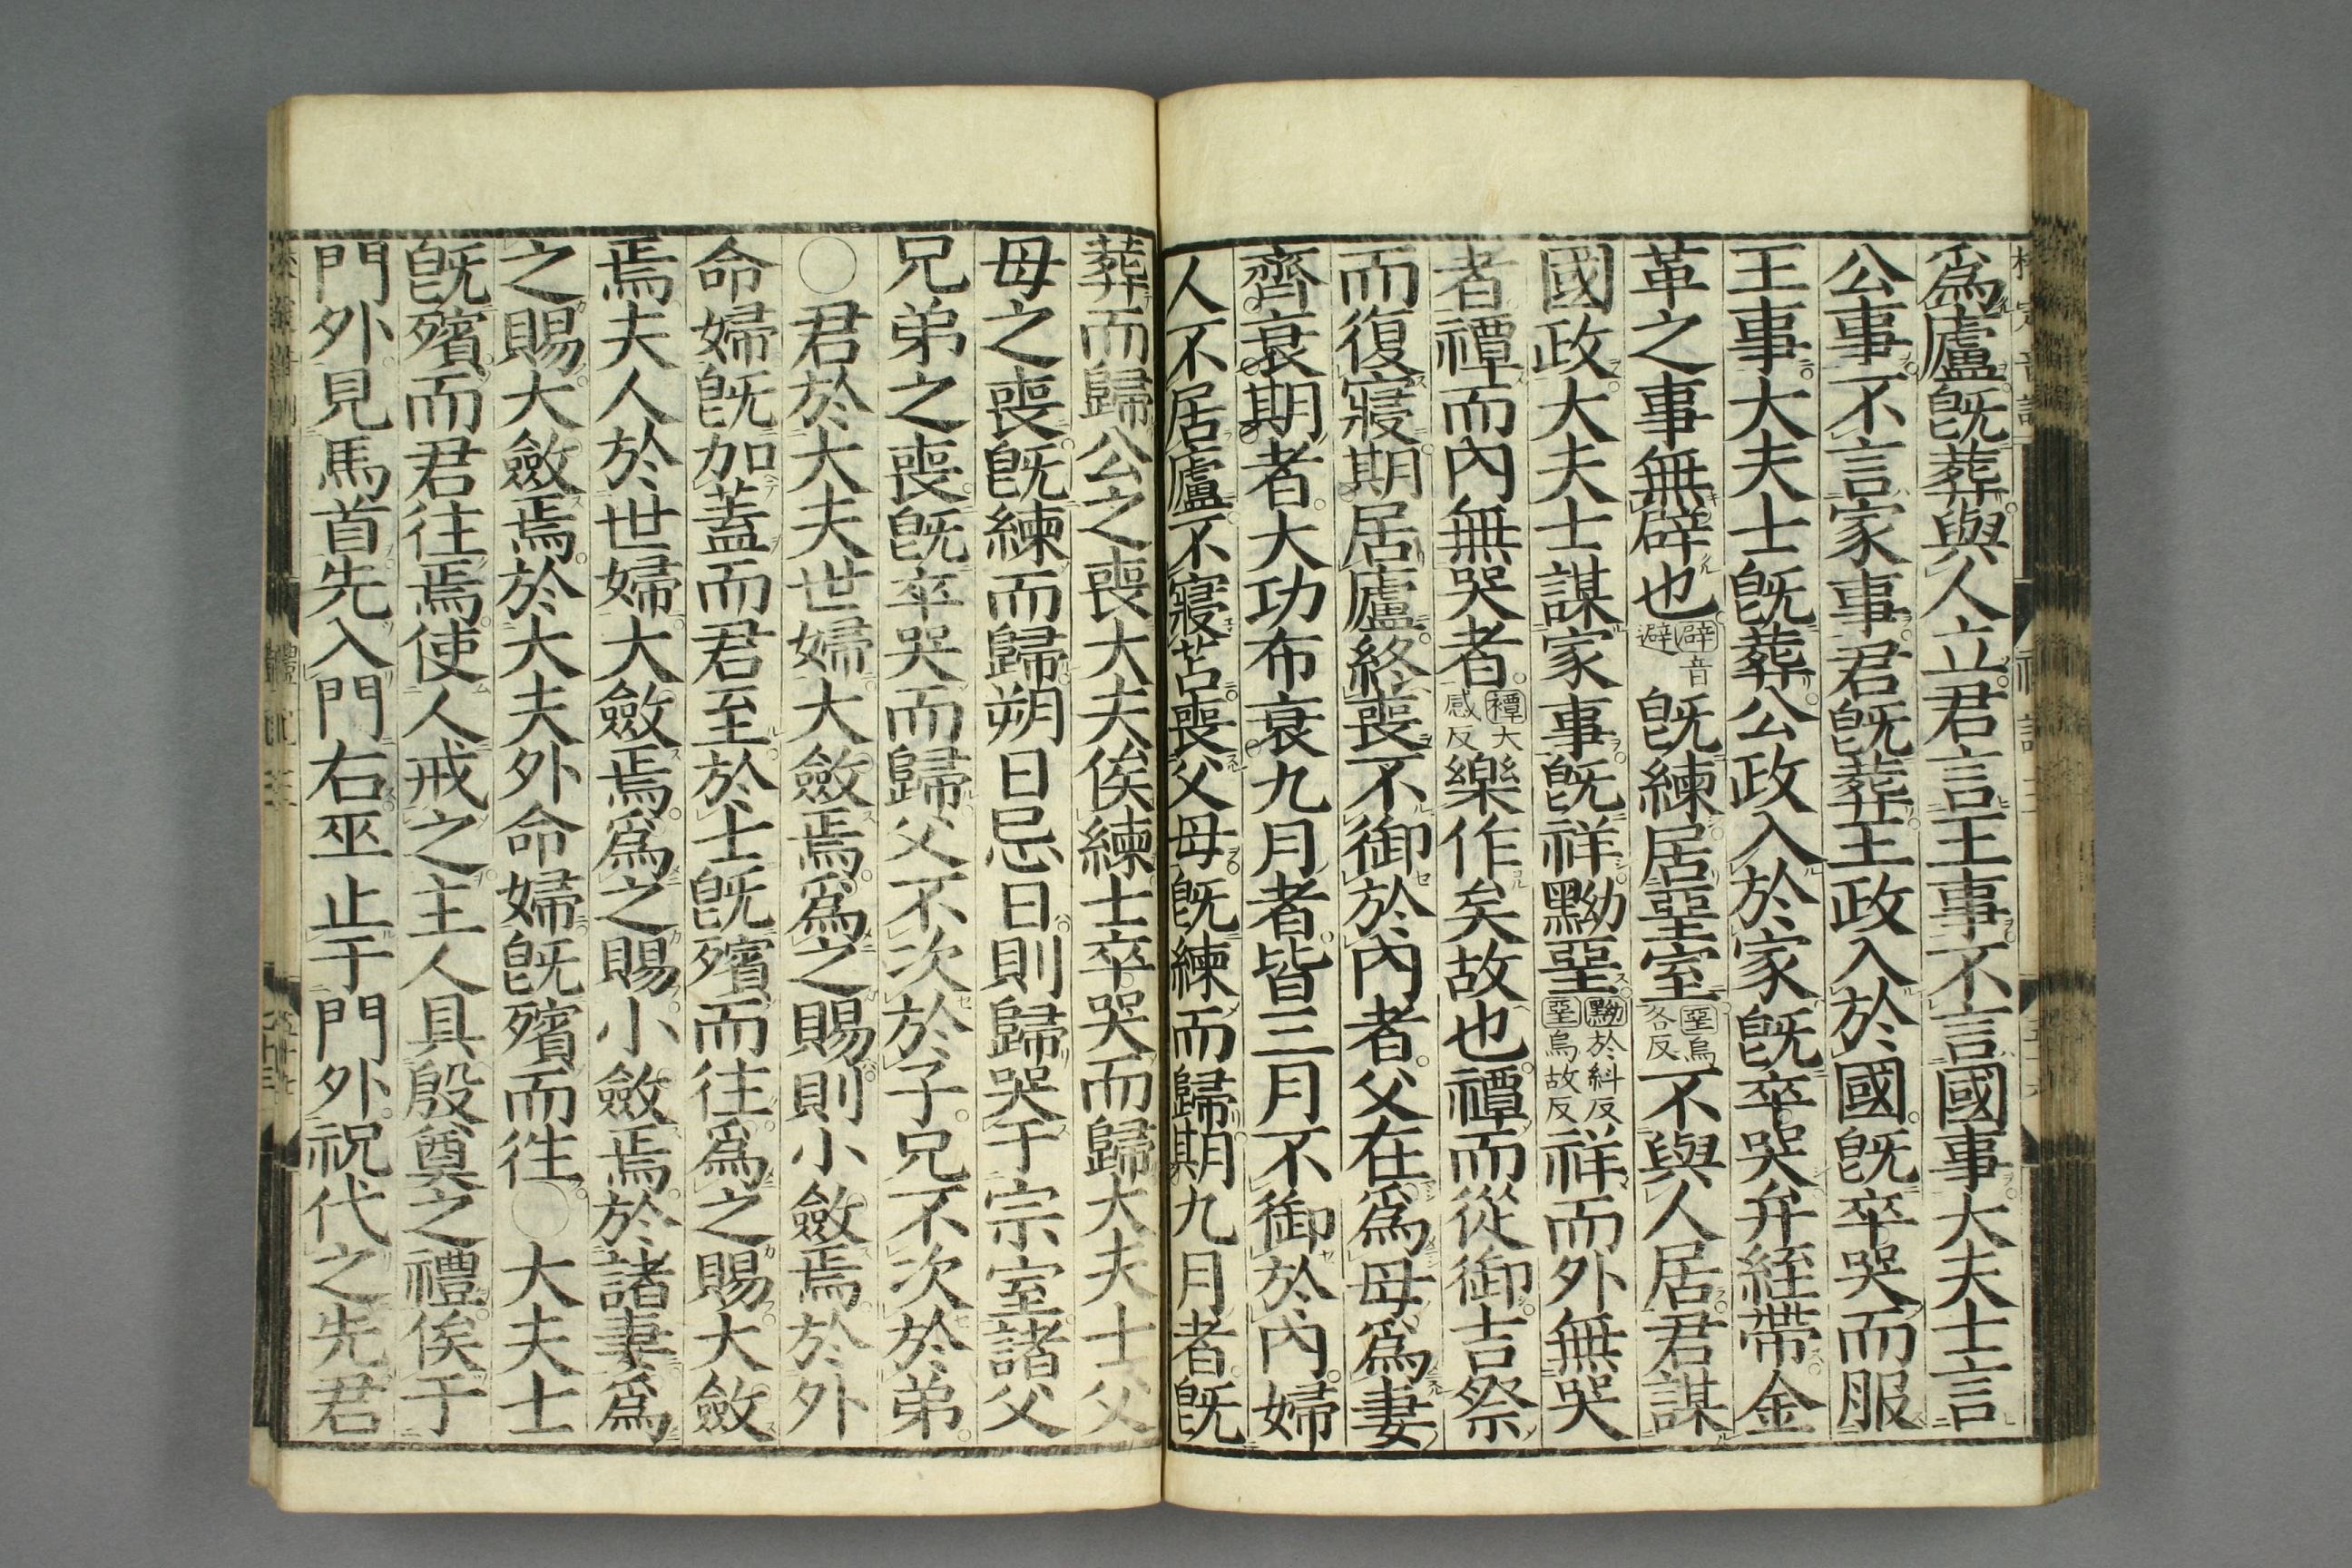 爲廬既葬與人立君言王事不言國事大夫士言
公事不言家事君既葬王政入於國既卒哭而服
王事大夫士既葬公政入於家既卒哭弁絰帶金
革之事無辟也辟音避既練居堊室堊烏各反不與人居君謀
國政大夫士謀家事既祥黝堊黝於糾反堊烏故反祥而外無哭
者禫而內無哭者禫大感反樂作矣故也禫而從御吉祭
而復寢期居廬終喪不御於內者父在爲母爲妻
齊衰期者大功布衰九月者皆三月不御於內婦
人不居廬不寢苫喪父母既練而歸期九月者既
葬而歸公之喪大夫俟練士卒哭而歸大夫士父
母之喪既練而歸朔日忌日則歸哭于宗室諸父
兄弟之喪既卒哭而歸父不次於子兄不次於弟
○君於大夫世婦大斂焉爲之賜則小斂焉於外
命婦既加蓋而君至於士既殯而往爲之賜大斂
焉夫人於世婦大斂焉爲之賜小斂焉於諸妻爲
之賜大斂焉於大夫外命婦既殯而往○大夫士
既殯而君往焉使人戒之主人具殷奠之禮俟于
門外見馬首先入門右巫止于門外祝代之先君